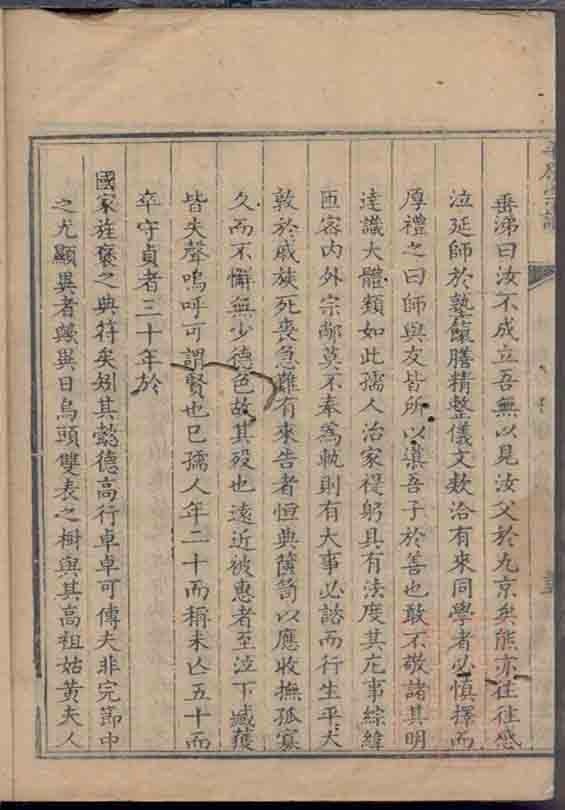 垂涕曰汝不成立吾無以見汝父於九京矣熊亦往往感
泣延師於塾饋膳精整儀文欵洽有來同學者必慎擇而
厚禮之曰師與友皆所以遵吾子於善也敢不敬諸其明
達識大體類如此孺人治家禔躬具有法度其庀事綜緯
匝容内外宗鄰莫不奉為軌則有大事必諮而行生平尤
敦於戚族死喪急難有來告者恒典簪笥以應收撫孤寡
久而不懈無少德色故其殁也遠近被惠者至泣下臧獲
皆失聲嗚呼可謂賢也已孺人年二十而稱未亡五十而
卒守貞者三十年於
國家旌褒之典符矣矧其懿德高行卓卓可傳夫非完節中
之尤顯異者歟異日烏頭雙表之樹與其高祖姑黄夫人